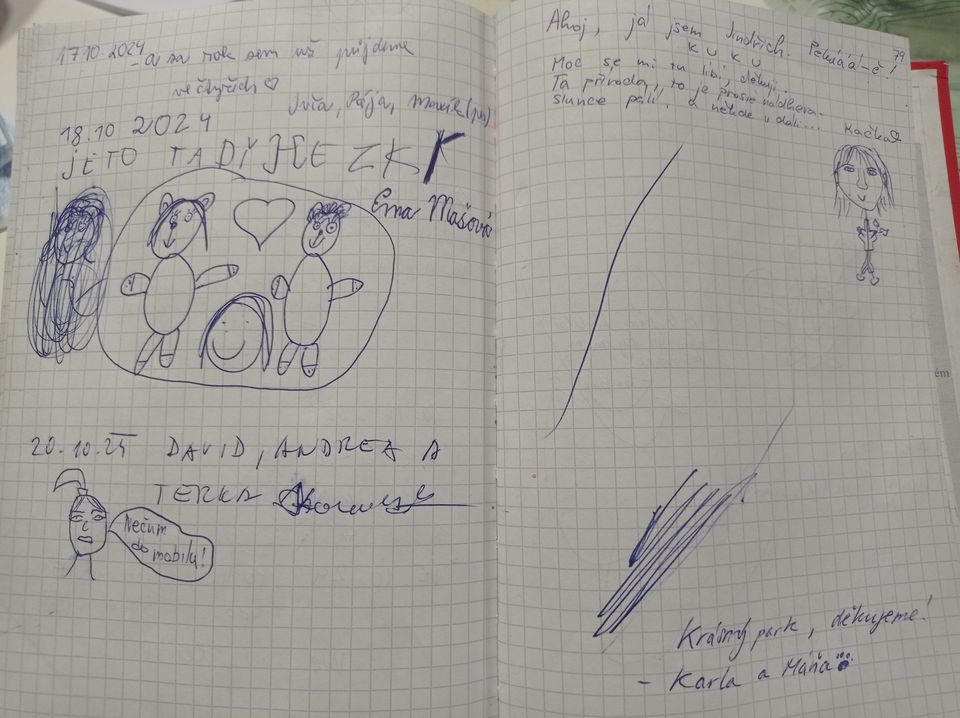 17.10.2024
- a za rok sem už přijdeme
ve čtyřech ♡
Pája,
18.10 2024
JE TO TADY HEZKK
Ema Mašová
20.10.24 DAVID, ANDREA A
TERKA
Nečum
do mobilu!
79
Ahoj, já jsem Jindřich.
KUKU
Moc se mi tu líbí, děkuji..
Ta příroda, to je prostě nádhera.
slunce pálí, a někde v dáli...
Kačka
Krásný park, děkujeme!
- Karla a Máňa